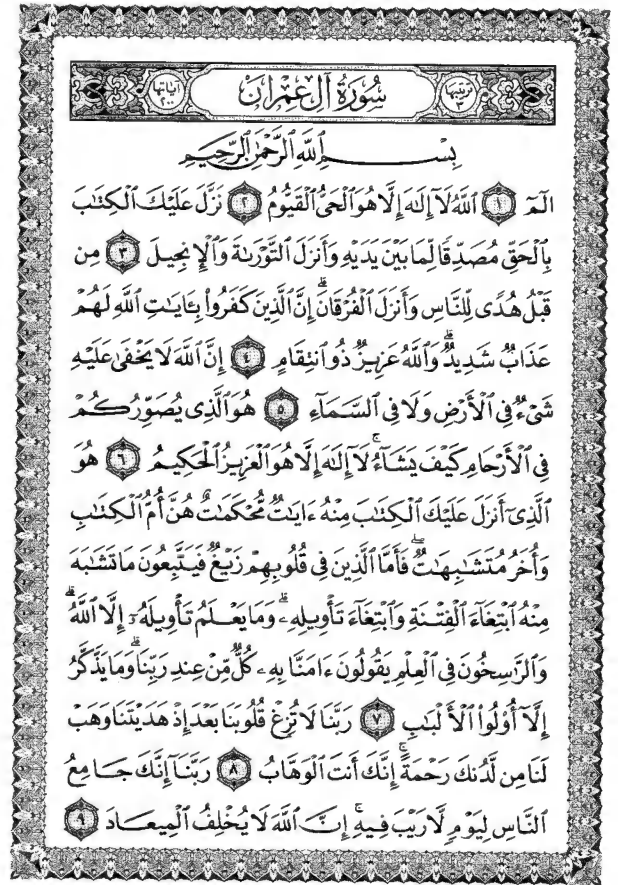 ترتيبها ٣
سُورَةُ آلِ عِمْرَان
آياتها ٢٠٠
بِسْمِ ٱللَّهِ ٱلرَّحْمَٰنِ ٱلرَّحِيمِ
الٓمٓ ١ ٱللَّهُ لَآ إِلَٰهَ إِلَّا هُوَ ٱلْحَىُّ ٱلْقَيُّومُ ٢ نَزَّلَ عَلَيْكَ ٱلْكِتَٰبَ
بِٱلْحَقِّ مُصَدِّقًا لِّمَا بَيْنَ يَدَيْهِ وَأَنزَلَ ٱلتَّوْرَىٰةَ وَٱلْإِنجِيلَ ٣ مِن
قَبْلُ هُدًى لِّلنَّاسِ وَأَنزَلَ ٱلْفُرْقَانَ ۗ إِنَّ ٱلَّذِينَ كَفَرُوا۟ بِـَٔايَٰتِ ٱللَّهِ لَهُمْ
عَذَابٌ شَدِيدٌ ۗ وَٱللَّهُ عَزِيزٌ ذُو ٱنتِقَامٍ ٤ إِنَّ ٱللَّهَ لَا يَخْفَىٰ عَلَيْهِ
شَىْءٌ فِى ٱلْأَرْضِ وَلَا فِى ٱلسَّمَآءِ ٥ هُوَ ٱلَّذِى يُصَوِّرُكُمْ
فِى ٱلْأَرْحَامِ كَيْفَ يَشَآءُ ۚ لَآ إِلَٰهَ إِلَّا هُوَ ٱلْعَزِيزُ ٱلْحَكِيمُ ٦ هُوَ
ٱلَّذِىٓ أَنزَلَ عَلَيْكَ ٱلْكِتَٰبَ مِنْهُ ءَايَٰتٌ مُّحْكَمَٰتٌ هُنَّ أُمُّ ٱلْكِتَٰبِ
وَأُخَرُ مُتَشَٰبِهَٰتٌ ۖ فَأَمَّا ٱلَّذِينَ فِى قُلُوبِهِمْ زَيْغٌ فَيَتَّبِعُونَ مَا تَشَٰبَهَ
مِنْهُ ٱبْتِغَآءَ ٱلْفِتْنَةِ وَٱبْتِغَآءَ تَأْوِيلِهِۦ ۗ وَمَا يَعْلَمُ تَأْوِيلَهُۥٓ إِلَّا ٱللَّهُ ۗ
وَٱلرَّٰسِخُونَ فِى ٱلْعِلْمِ يَقُولُونَ ءَامَنَّا بِهِۦ كُلٌّ مِّنْ عِندِ رَبِّنَا ۗ وَمَا يَذَّكَّرُ
إِلَّآ أُو۟لُوا۟ ٱلْأَلْبَٰبِ ٧ رَبَّنَا لَا تُزِغْ قُلُوبَنَا بَعْدَ إِذْ هَدَيْتَنَا وَهَبْ
لَنَا مِن لَّدُنكَ رَحْمَةً ۚ إِنَّكَ أَنتَ ٱلْوَهَّابُ ٨ رَبَّنَآ إِنَّكَ جَامِعُ
ٱلنَّاسِ لِيَوْمٍ لَّا رَيْبَ فِيهِ ۚ إِنَّ ٱللَّهَ لَا يُخْلِفُ ٱلْمِيعَادَ ٩